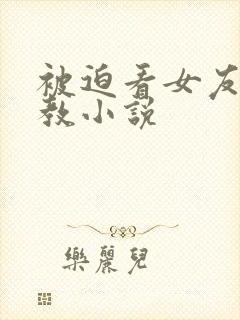 被迫看女友
教小說
樂麗兒